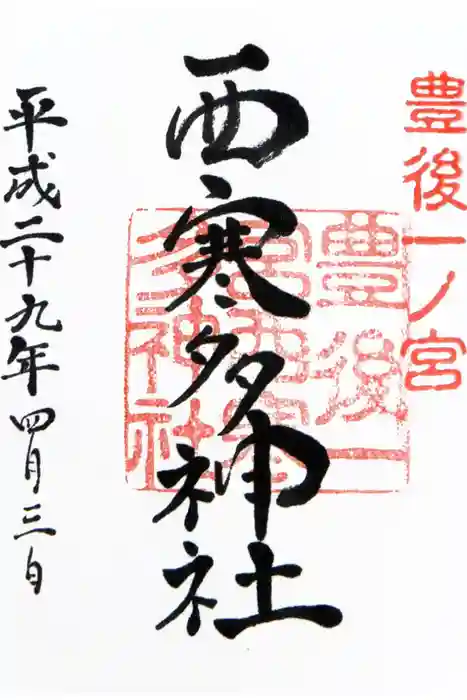 豊後一ノ宮
西寒多神社
豊後一宮西寒多神社
平成二十九年四月三日